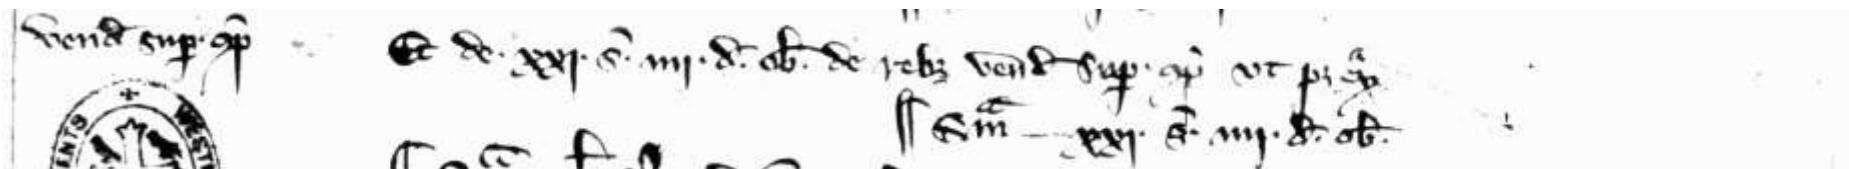 vend sup comp
Et de .xxi. s. iiii. d. ob. de rebȝ vend sup comp ut pȝ ex
¶ Sma xxi. s. iiii. d. ob.